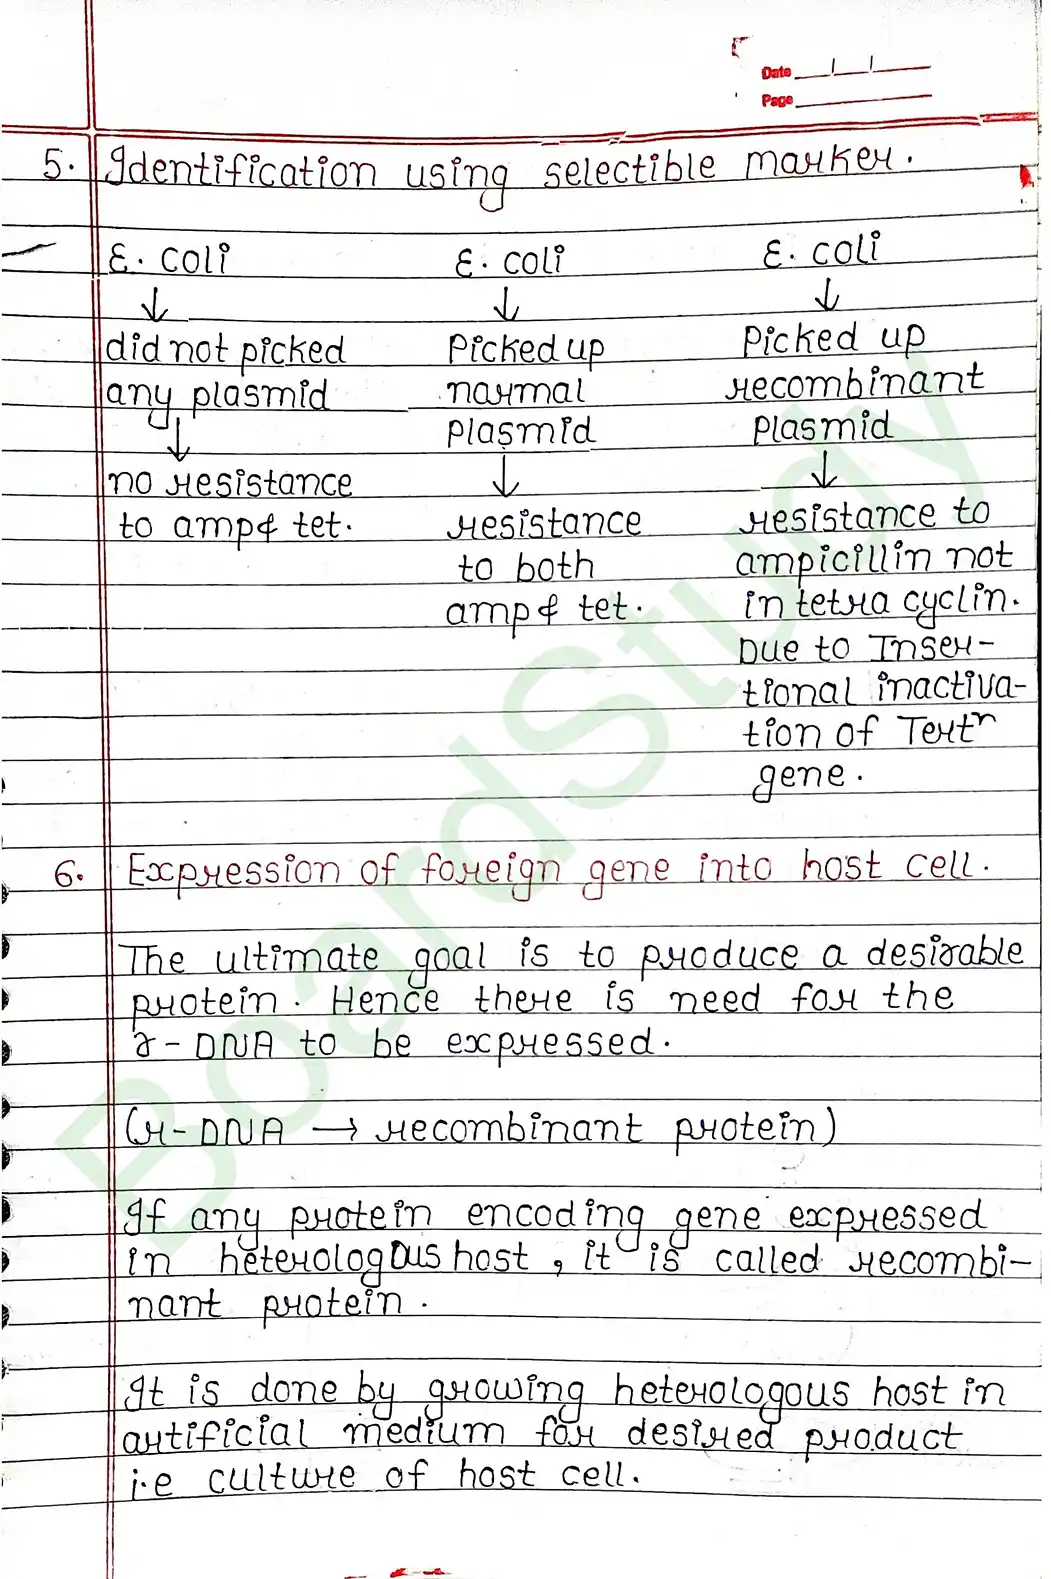 Date
Page
5. Identification using selectible marker.
E. coli E. coli E. coli
did not picked Picked up Picked up
any plasmid normal recombinant
Plasmid Plasmid
no resistance
to amp & tet. resistance resistance to
to both ampicillin not
amp & tet. in tetra cyclin.
Due to Inser-
tional inactiva-
tion of Tert^r
gene.
6. Expression of foreign gene into host cell.
The ultimate goal is to produce a desirable
protein. Hence there is need for the
r-DNA to be expressed.
(r-DNA → recombinant protein)
If any protein encoding gene expressed
in heterologous host, it is called recombi-
nant protein.
It is done by growing heterologous host in
artificial medium for desired product
i.e culture of host cell.
BoardStudy